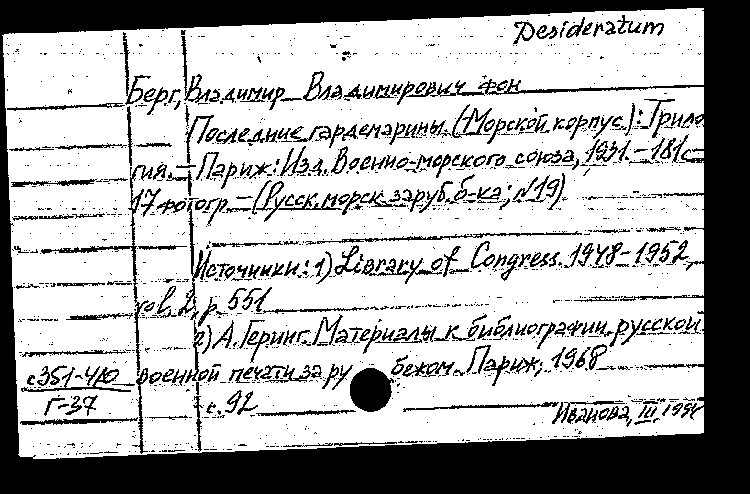 Desideratum
Берг, Владимир Владимирович фон
Последние гардемарины (Морской корпус): Трило
гия. – Париж: Изд. Военно-морского союза, 1931. – 181с
17 фотогр. – (Русск. морск. заруб. б-ка; №19)
Источники: 1) Library of Congress. 1948–1952,
vol. 2, p. 551
2) А. Геринг. Материалы к библиографии русской
военной печати за рубежом. Париж, 1968
с. 92
с351-410
Г-37
Иванова, III,